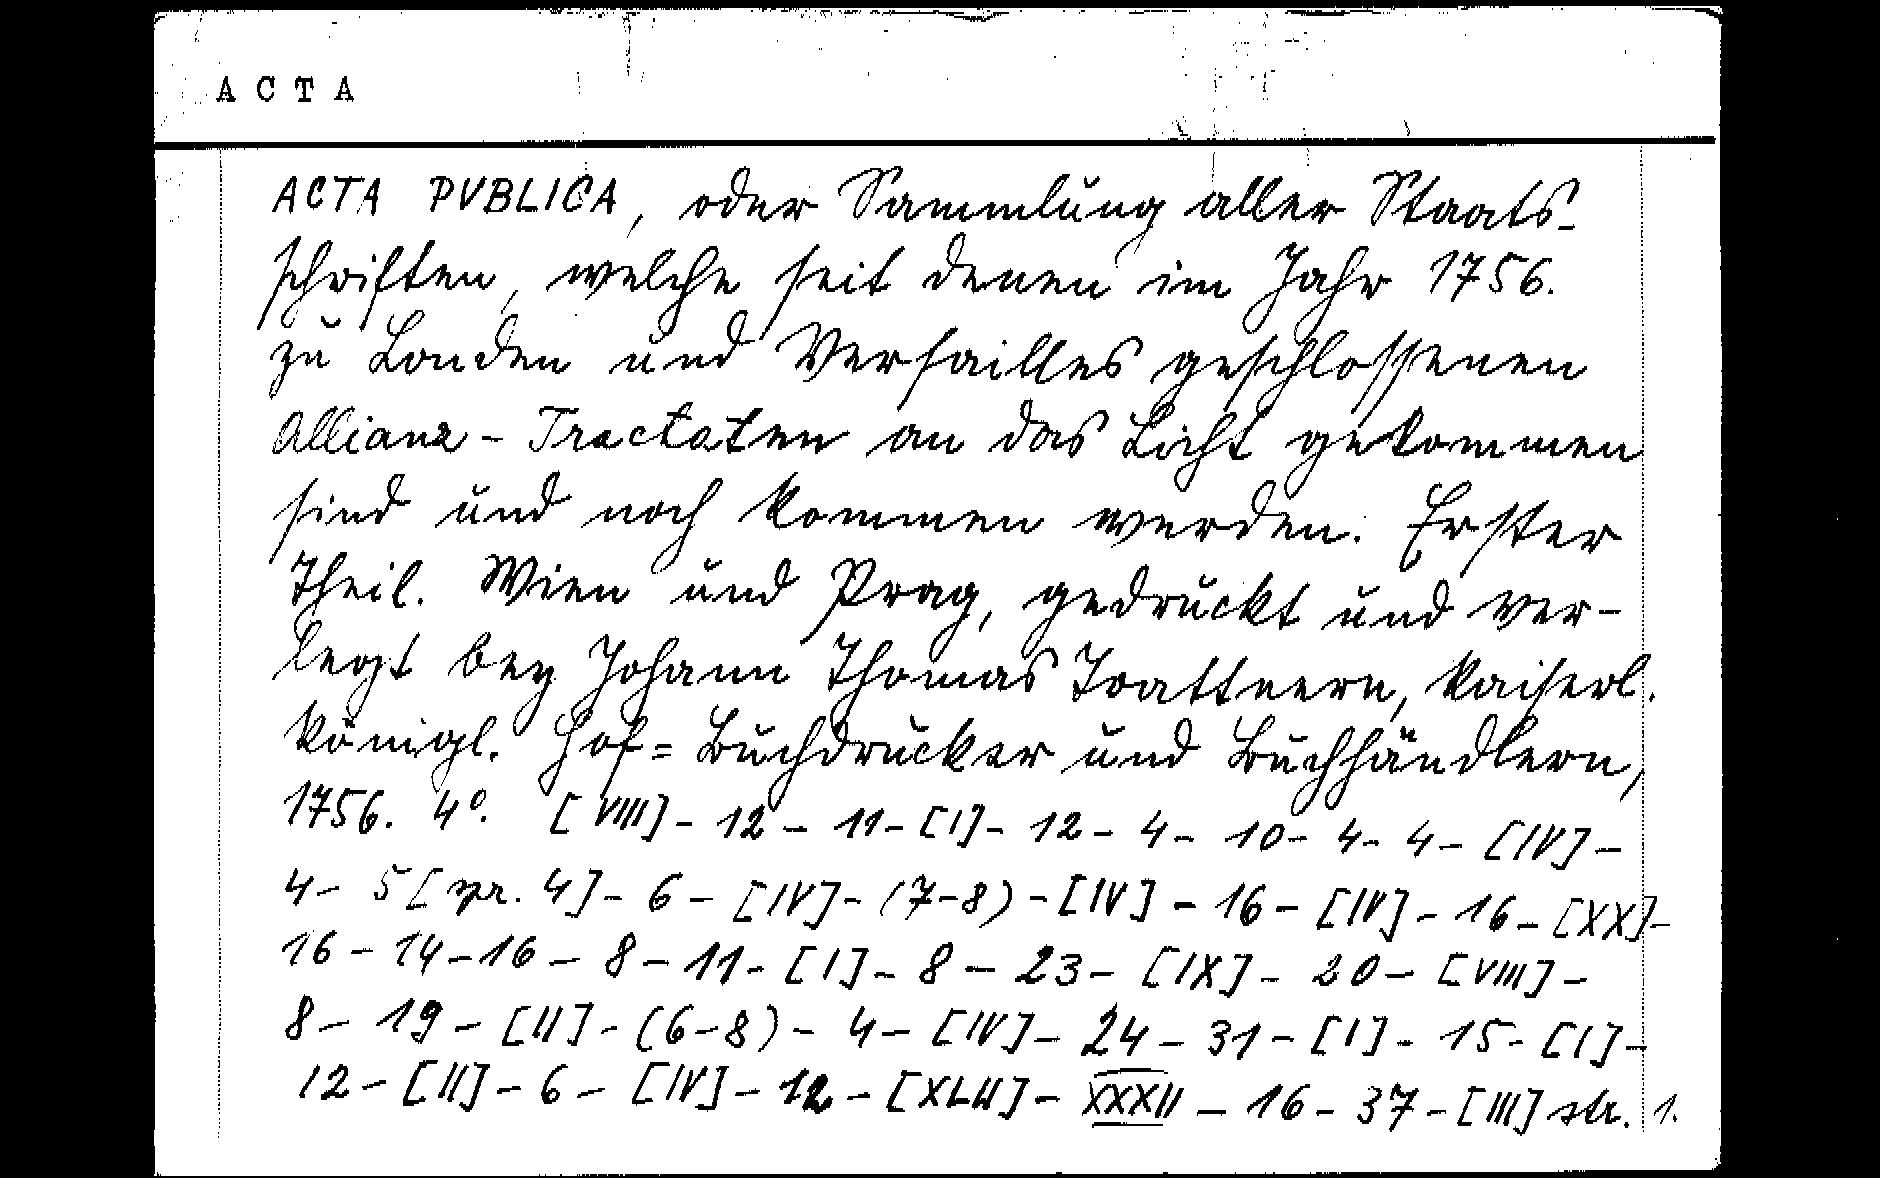 ACTA
ACTA PVBLICA, oder Sammlung aller Staats-
schriften, welche seit denen im Jahr 1756.
zu Londen und Versailles geschlossenen
Allianz-Tractaten an das Licht gekommen
sind und noch kommen werden. Erster
Theil. Wien und Prag, gedruckt und ver-
legt bey Johann Thomas Trattnern, kaiserl.
königl. Hof=Buchdrucker und Buchhändlern,
1756. 4°. [VIII] - 12 - 11 - [I] - 12 - 4 - 10 - 4 - 4 - [IV] -
4 - 5 [spr. 4] - 6 - [IV] - (7-8) - [IV] - 16 - [IV] - 16 - [XX] -
16 - 14 - 16 - 8 - 11 - [I] - 8 - 23 - [IX] - 20 - [VIII] -
8 - 19 - [II] - (6-8) - 4 - [IV] - 24 - 31 - [I] - 15 - [I] -
12 - [II] - 6 - [IV] - 12 - [XLII] - XXXII - 16 - 37 - [III] str. 1.